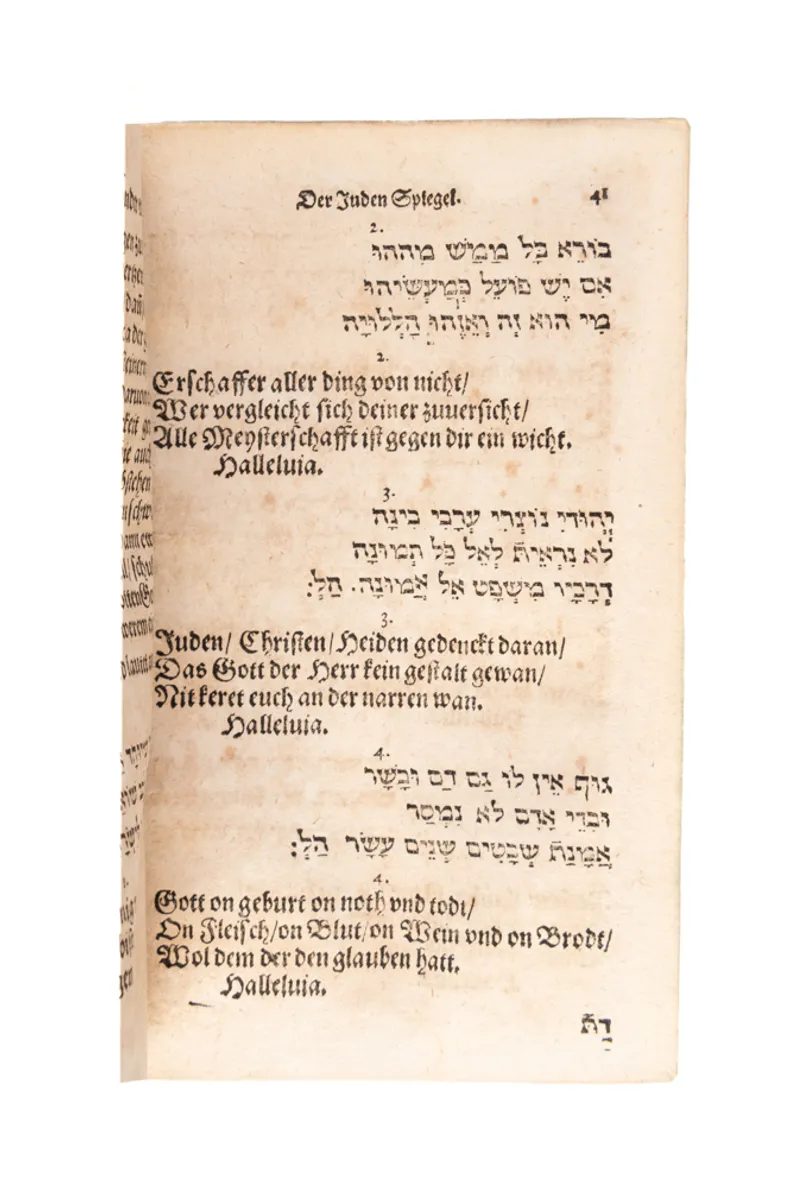 Der Juden Spiegel. 41
2.
בּוֹרֵא כָּל מַמָּשׁ מִההוּ
אִם יֶשׁ פּוֹעֵל כְּמַעֲשֵׂיהוּ
מִי הוּא זֶה וְאֵזֶהוּ הַלְלוּיָה
2.
Erschaffer aller ding von nicht/
Wer vergleicht sich deiner zuuersicht/
Alle Meysterschafft ist gegen dir ein wicht.
Halleluia.
3.
יְהוּדִי נוֹצְרִי עְרָבִי בִּינָה
לֹא נִרְאֵית לְאֵל כָּל תְּמוּנָה
דְרָכָיו מִישְׁפָּט אֵל אֲמוּנָה. הַלְ:
3.
Juden/ Christen/ Heiden gedenckt daran/
Das Gott der Herr kein gestalt gewan/
Nit keret euch an der narren wan.
Halleluia.
4.
גוּף אֵין לוֹ גַם דַם וּבָשָׂר
וּבִדֵי אָדָם לֹא נִמְסַר
אֱמָנַת שְׁבָטִים שְׁנֵים עָשָׂר הַלְ:
4.
Gott on geburt on noth vnd todt/
On Fleisch/ on Blut/ on Wein vnd on Brodt/
Wol dem der den glauben hatt.
Halleluia.
דָת